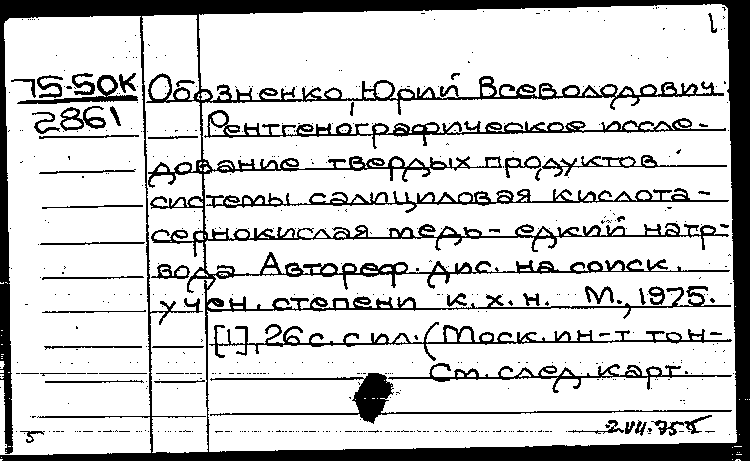 1
75-50К Обозненко, Юрий Всеволодович.
2861 Рентгенографическое иссле-
дование твердых продуктов
системы салициловая кислота-
сернокислая медь - едкий натр-
вода. Автореф. дис. на соиск.
учен. степени к. х. н. М., 1975.
[1], 26 с. с ил. (Моск. ин-т тон-
См. след. карт.
5